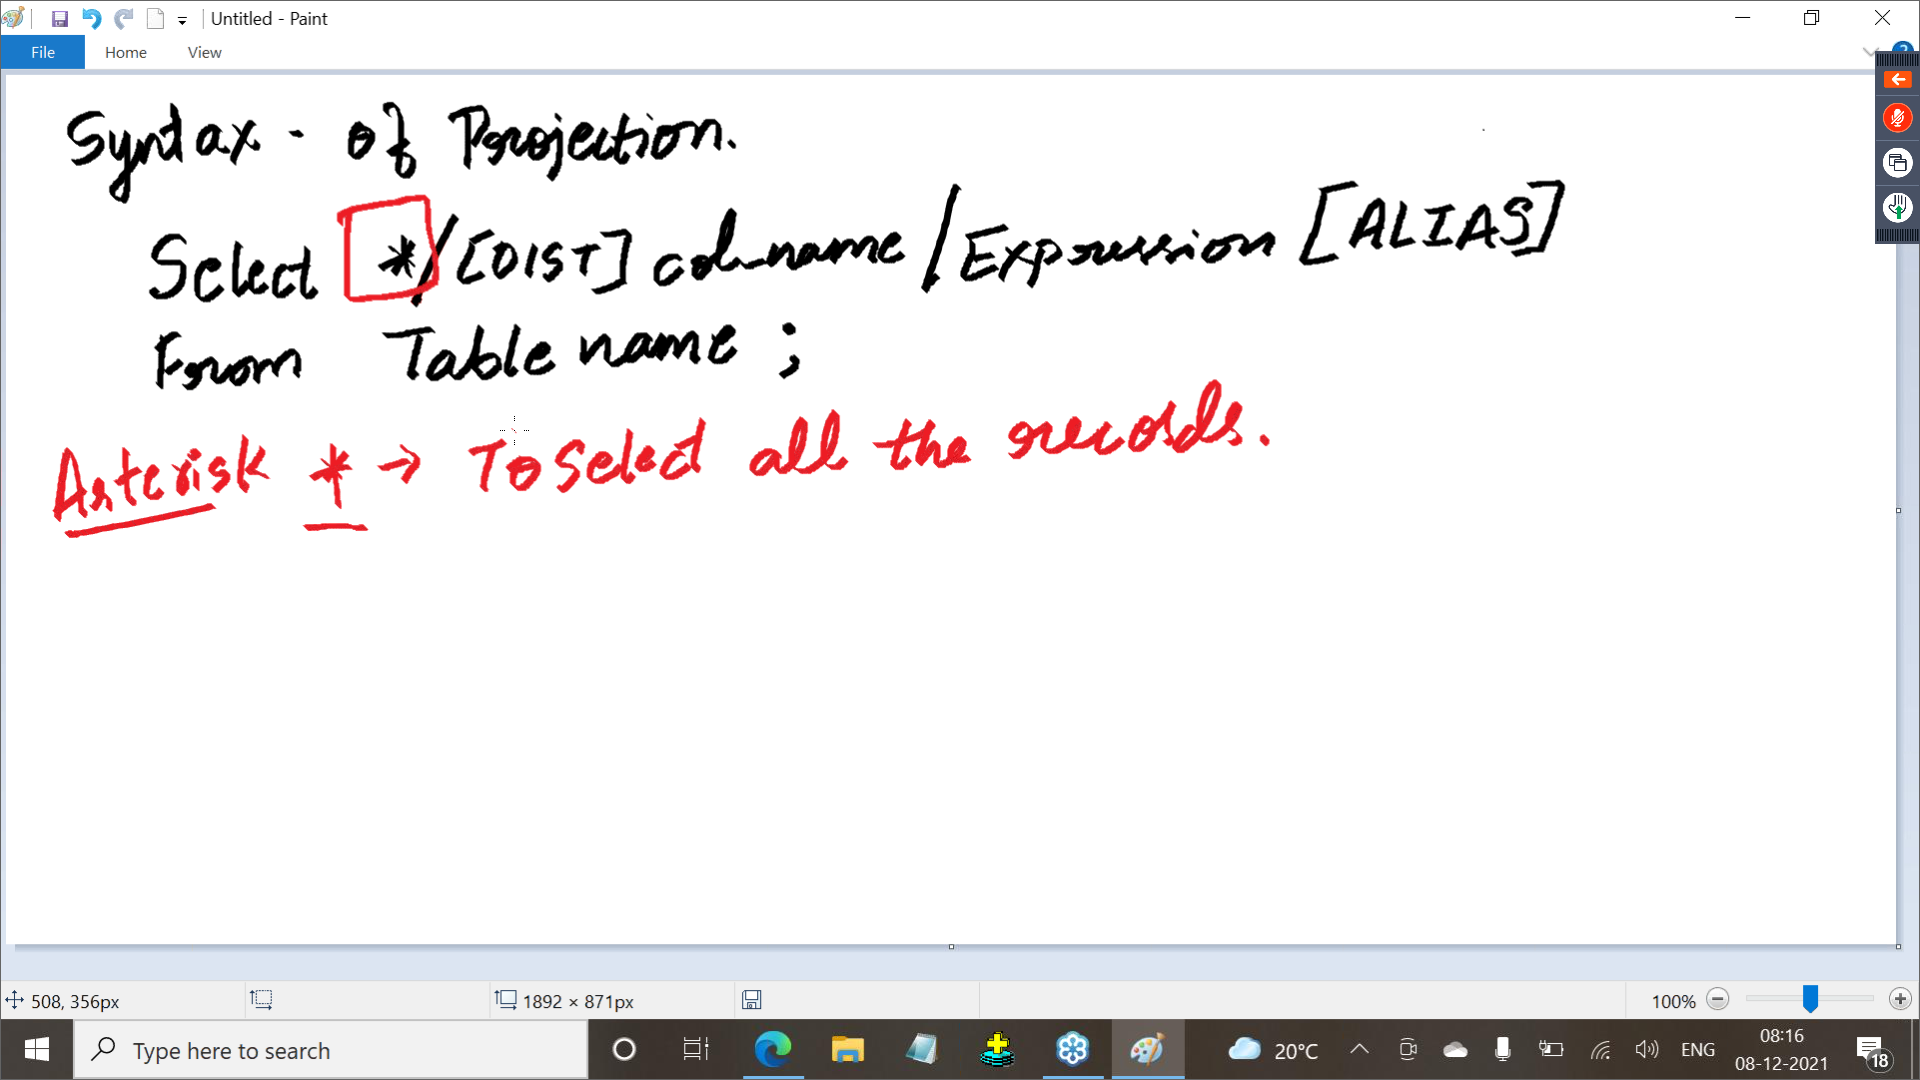 Untitled - Paint
File Home View
Syntax - of Projection.
Select */[DIST] col-name / Expression [ALIAS]
From Table name ;
Asterisk * → To Select all the records.
508, 356px 1892 × 871px 100%
Type here to search 20°C ENG 08:16
08-12-2021 18